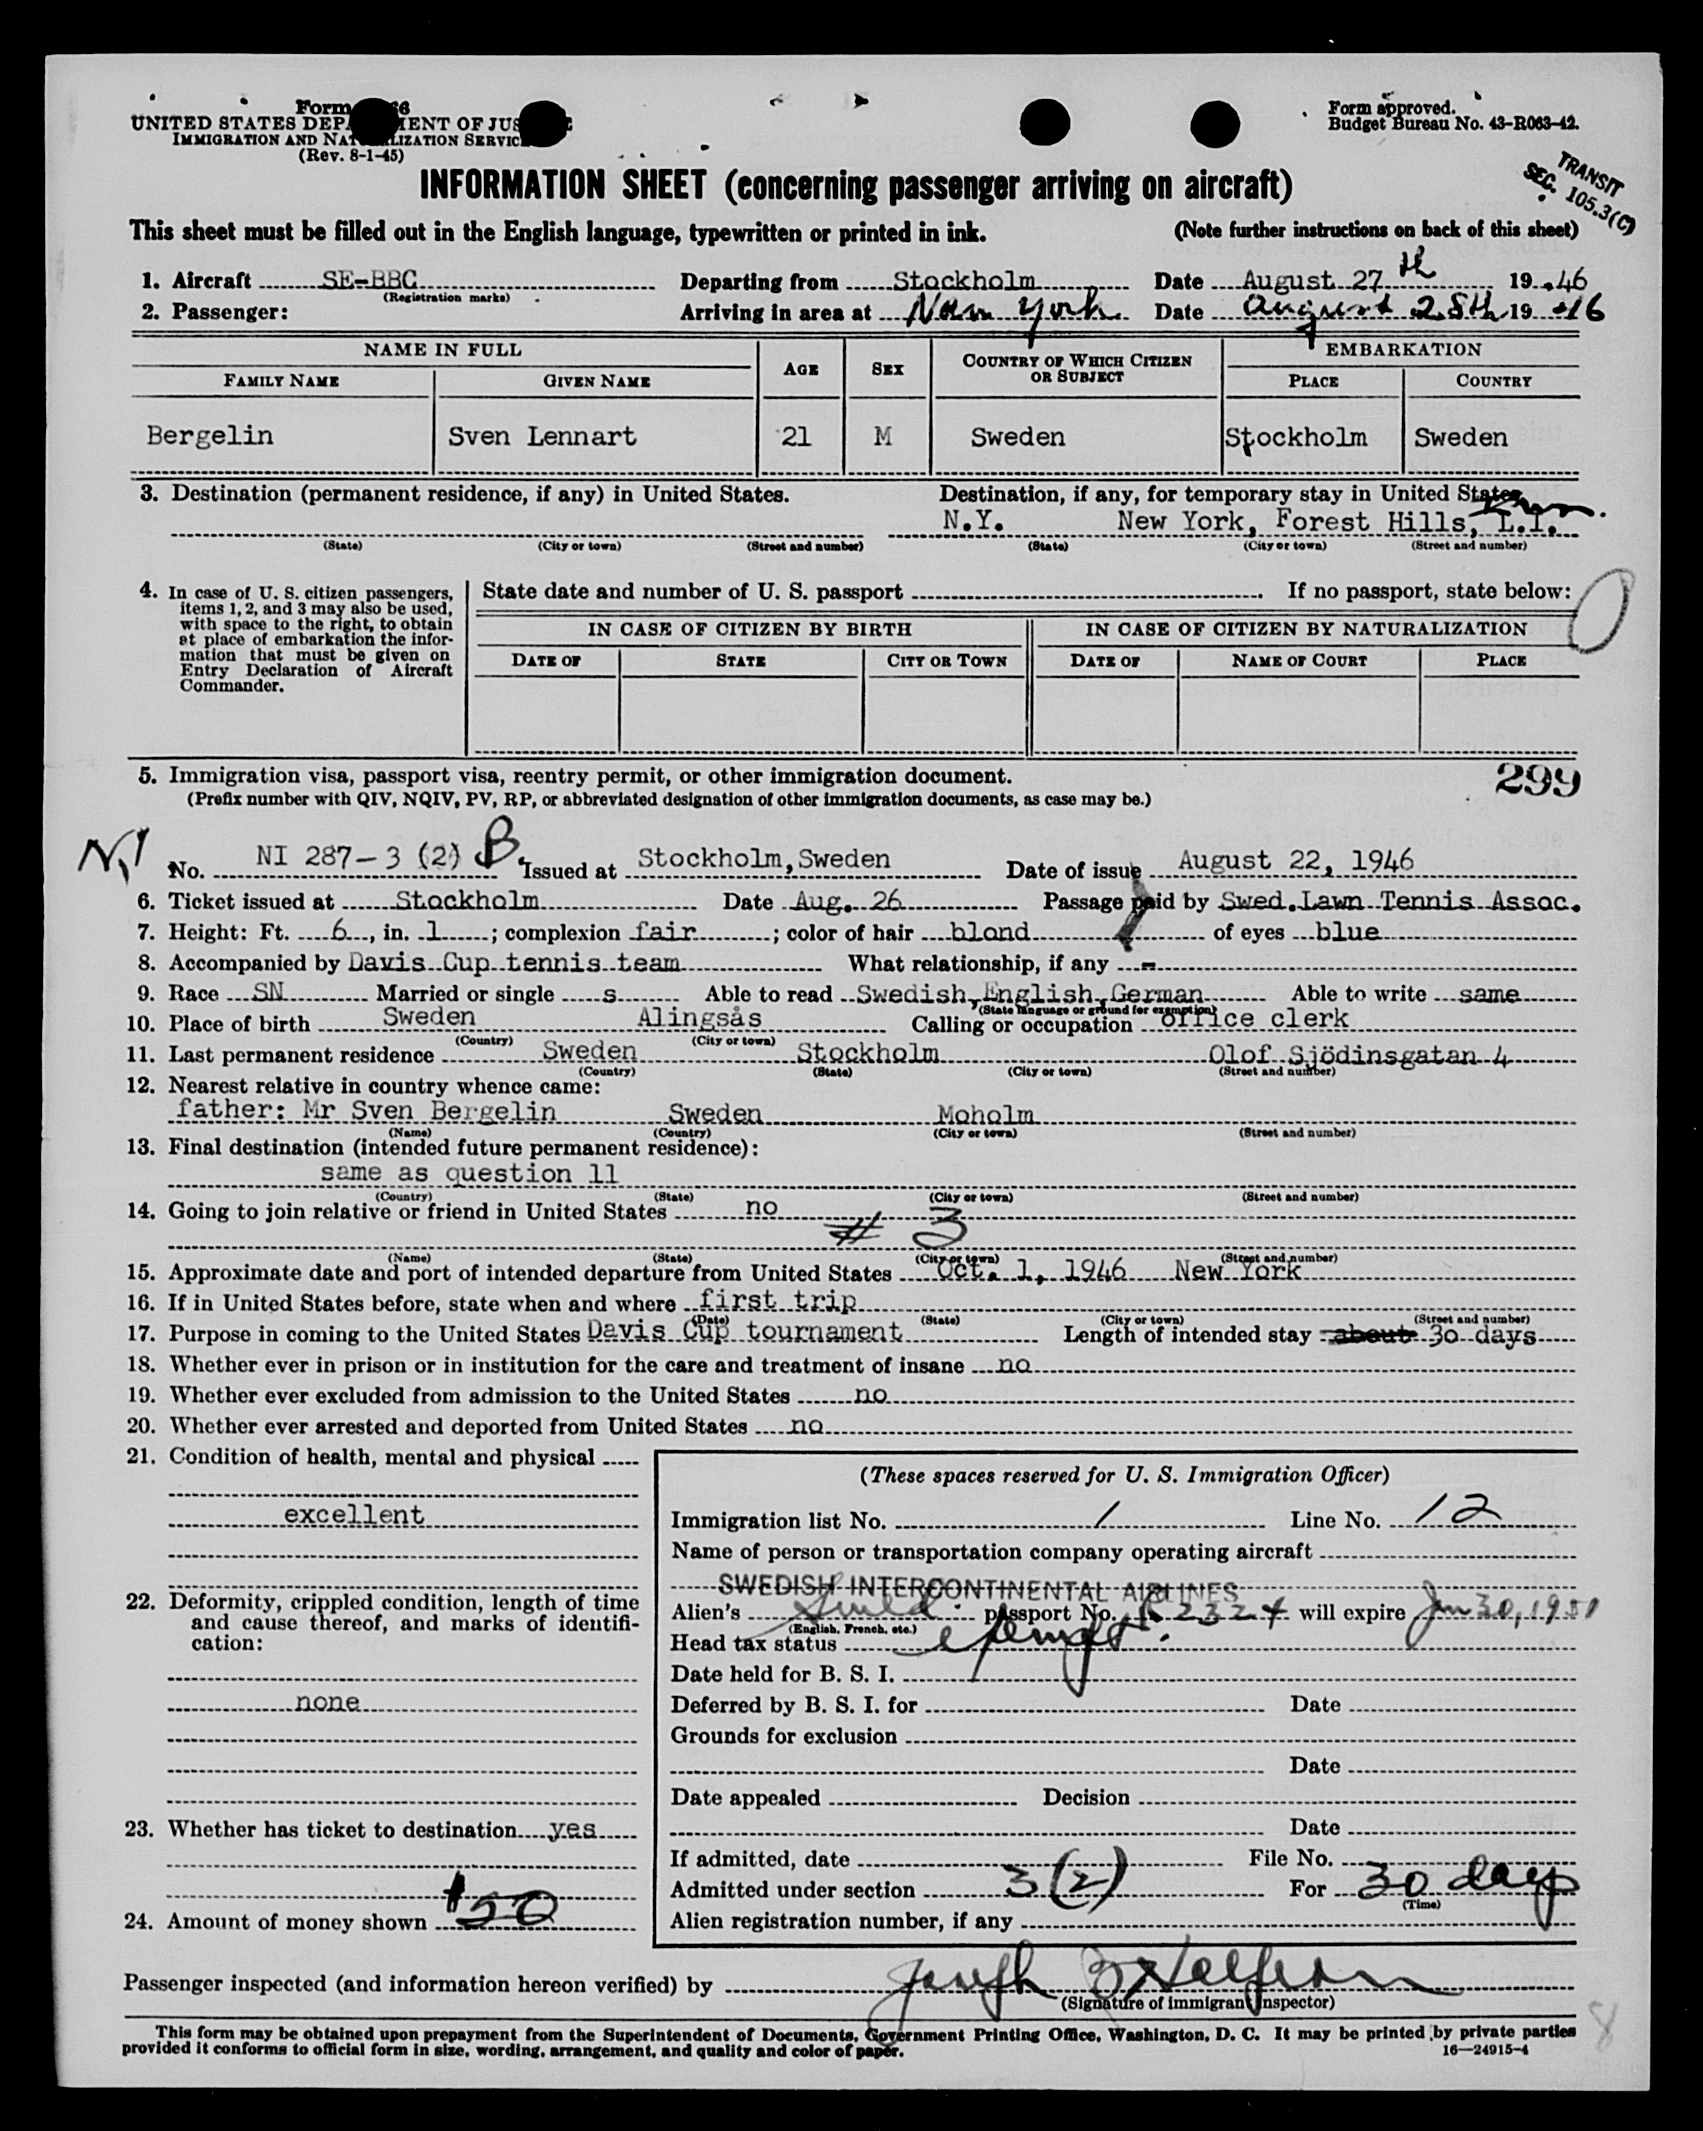 Form 66
UNITED STATES DEPA MENT OF JUS
IMMIGRATION AND NAT LIZATION SERVIC
(Rev. 8-1-45)
Form approved.
Budget Bureau No. 43-R063-42.
TRANSIT
SEC. 105.3(C)
INFORMATION SHEET (concerning passenger arriving on aircraft)
This sheet must be filled out in the English language, typewritten or printed in ink. (Note further instructions on back of this sheet)
1. Aircraft SE-BBC Departing from Stockholm Date August 27th 1946
(Registration marks)
2. Passenger: Arriving in area at New York Date August 28th 1946
NAME IN FULL AGE SEX COUNTRY OF WHICH CITIZEN OR SUBJECT EMBARKATION
FAMILY NAME GIVEN NAME PLACE COUNTRY
Bergelin Sven Lennart 21 M Sweden Stockholm Sweden
3. Destination (permanent residence, if any) in United States. Destination, if any, for temporary stay in United States
N.Y. New York, Forest Hills, L.I.
(State) (City or town) (Street and number) (State) (City or town) (Street and number)
4. In case of U. S. citizen passengers, items 1, 2, and 3 may also be used, with space to the right, to obtain at place of embarkation the information that must be given on Entry Declaration of Aircraft Commander.
State date and number of U. S. passport If no passport, state below:
IN CASE OF CITIZEN BY BIRTH IN CASE OF CITIZEN BY NATURALIZATION
DATE OF STATE CITY OR TOWN DATE OF NAME OF COURT PLACE
5. Immigration visa, passport visa, reentry permit, or other immigration document. 299
(Prefix number with QIV, NQIV, PV, RP, or abbreviated designation of other immigration documents, as case may be.)
No. NI 287-3 (2) B. Issued at Stockholm, Sweden Date of issue August 22, 1946
6. Ticket issued at Stockholm Date Aug. 26 Passage paid by Swed. Lawn Tennis Assoc.
7. Height: Ft. 6, in. 1; complexion fair; color of hair blond of eyes blue
8. Accompanied by Davis Cup tennis team What relationship, if any -
9. Race SN Married or single s Able to read Swedish, English, German Able to write same
(State language or ground for exemption)
10. Place of birth Sweden Alingsås Calling or occupation office clerk
(Country) (City or town)
11. Last permanent residence Sweden Stockholm Olof Sjödinsgatan 4
(Country) (State) (City or town) (Street and number)
12. Nearest relative in country whence came:
father: Mr Sven Bergelin Sweden Moholm
(Name) (Country) (City or town) (Street and number)
13. Final destination (intended future permanent residence):
same as question 11
(Country) (State) (City or town) (Street and number)
14. Going to join relative or friend in United States no
# 3
(Name) (State) (City or town) (Street and number)
15. Approximate date and port of intended departure from United States Oct. 1, 1946 New York
16. If in United States before, state when and where first trip
(Date) (State) (City or town) (Street and number)
17. Purpose in coming to the United States Davis Cup tournament Length of intended stay about 30 days
18. Whether ever in prison or in institution for the care and treatment of insane no
19. Whether ever excluded from admission to the United States no
20. Whether ever arrested and deported from United States no
21. Condition of health, mental and physical
excellent
22. Deformity, crippled condition, length of time and cause thereof, and marks of identification:
none
23. Whether has ticket to destination yes
24. Amount of money shown $50
(These spaces reserved for U. S. Immigration Officer)
Immigration list No. 1 Line No. 12
Name of person or transportation company operating aircraft
SWEDISH INTERCONTINENTAL AIRLINES
Alien's passport No. 2324 will expire Jun 30, 1951
(English, French, etc.)
Head tax status exempt
Date held for B. S. I.
Deferred by B. S. I. for Date
Grounds for exclusion
Date
Date appealed Decision
Date
If admitted, date File No.
Admitted under section 3(2) For 30 days
(Time)
Alien registration number, if any
Passenger inspected (and information hereon verified) by
(Signature of Immigrant Inspector)
This form may be obtained upon prepayment from the Superintendent of Documents, Government Printing Office, Washington, D. C. It may be printed by private parties
provided it conforms to official form in size, wording, arrangement, and quality and color of paper. 16—24915-4
8